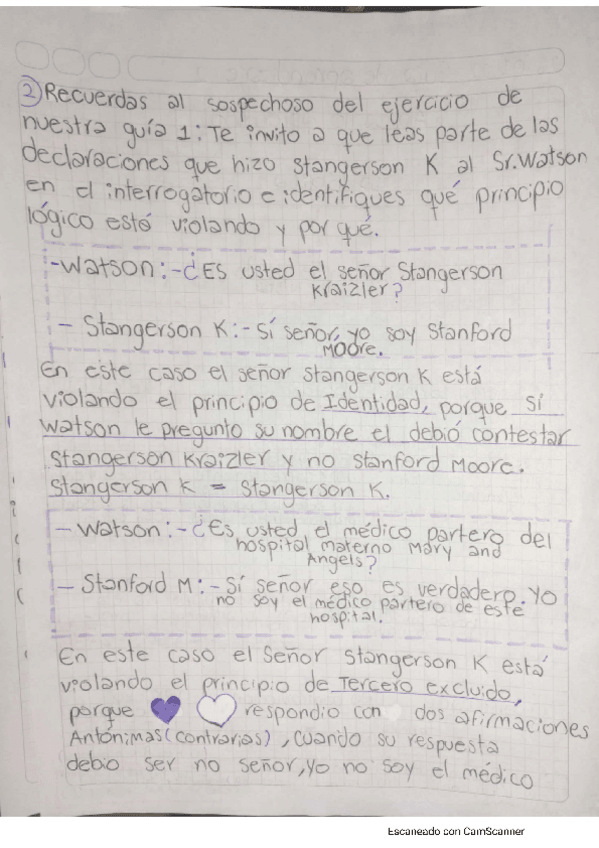 ② Recuerdas al sospechoso del ejercicio de
nuestra guía 1: Te invito a que leas parte de las
declaraciones que hizo Stangerson K al Sr. Watson
en el interrogatorio e identifiques qué principio
lógico está violando y por qué.
-Watson: -¿Es usted el señor Stangerson
Kraizler?
- Stangerson K: - Sí señor, yo soy Stanford
Moore.
En este caso el señor Stangerson K está
violando el principio de Identidad, porque sí
Watson le pregunto su nombre el debió contestar
Stangerson Kraizler y no Stanford Moore.
Stangerson K = Stangerson K.
- Watson: -¿Es usted el médico partero del
hospital materno Mary and
Angels?
- Stanford M: - Sí señor eso es verdadero. Yo
no soy el médico partero de este
hospital.
En este caso el Señor Stangerson K está
violando el principio de Tercero excluido,
porque respondio con dos afirmaciones
Antónimas (contrarias), cuando su respuesta
debio ser no señor, yo no soy el médico
Escaneado con CamScanner